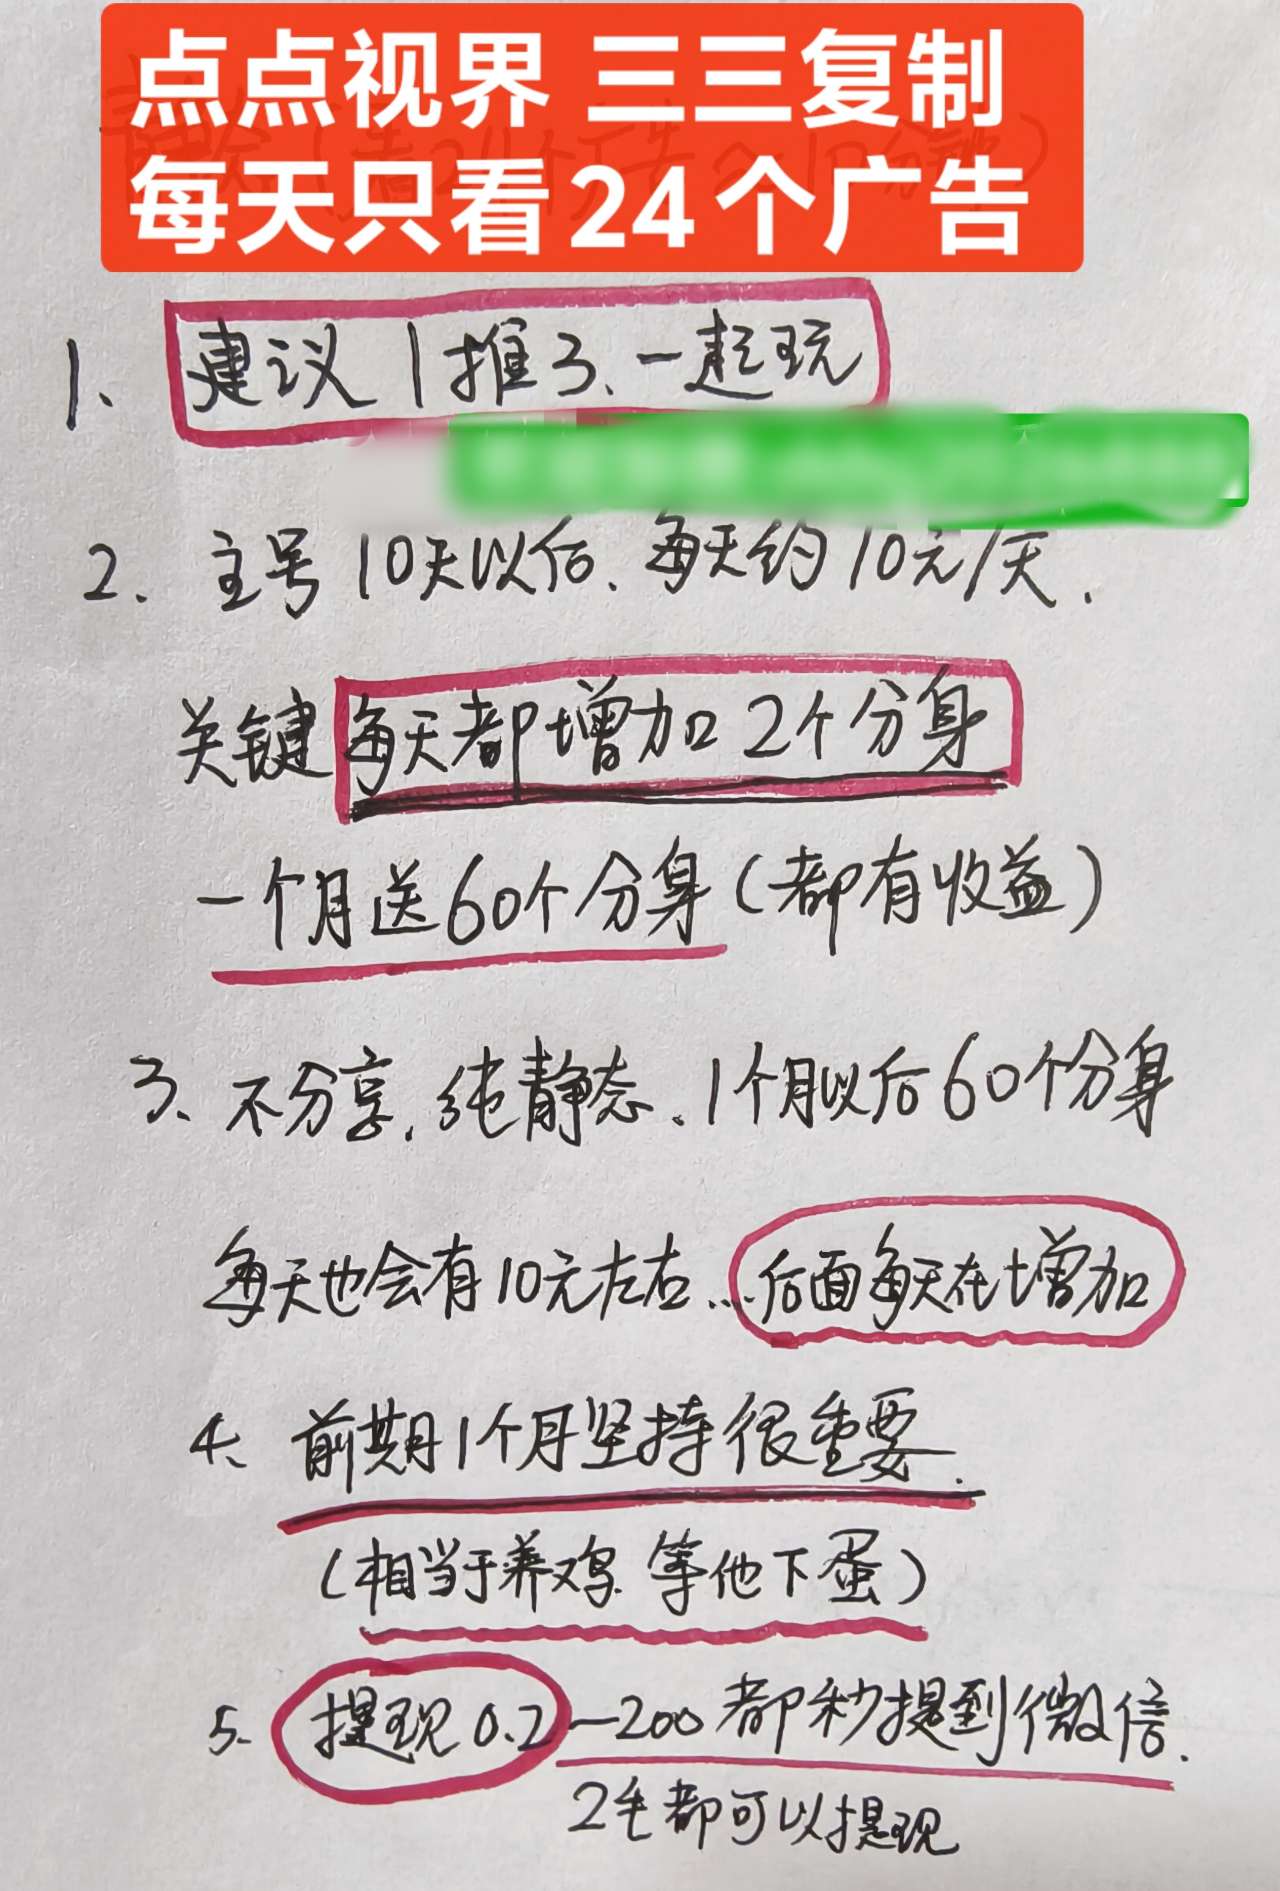 点点视界 三三复制
每天只看24个广告
1、建议1推3、一起玩
2. 主号10天以后、每天约10元/天.
关键每天都增加2个分身
一个月送60个分身(都有收益)
3、不分享,纯静态、1个月以后60个分身
每天也会有10元左右…后面每天在增加
4、前期1个月坚持很重要.
(相当于养鸡 等他下蛋)
5. 提现0.2—200都秒提到微信.
2毛都可以提现